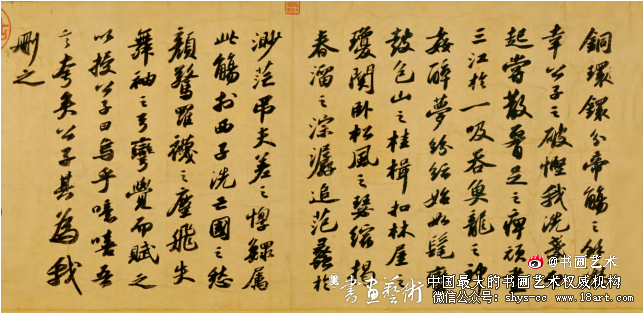 銅環鏁分帝觴之餘
幸公子之破慳我洗盞
起嘗散腰足之痹頑
三江於一吸吞魚龍之神
姦醉夢紛紜始如髦
鼓包山之桂楫扣林屋之
瓊關卧松風之瑟縮揭
春溜之淙潺追范蠡於
渺茫吊夫差之惸鰥屬
此觴於西子洗亡國之愁
顏驚羅襪之塵飛失
舞袖之弓彎覺而賦之
以授公子曰烏乎噫嘻吾
言夸矣公子其為我
刪之
@书画艺术
書畫藝術
中国最大的书画艺术权威机构
微信公众号: shys-cc www.18art.com